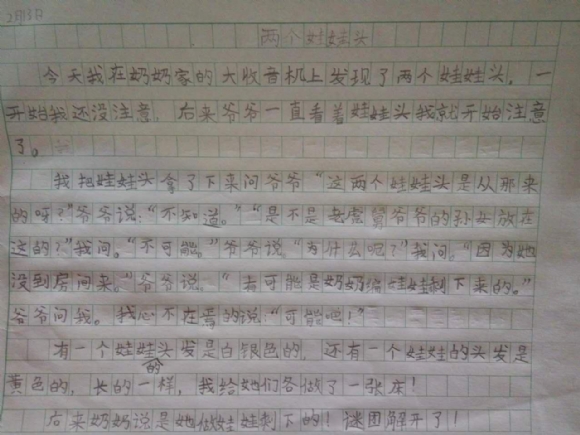 2月13日
两个娃娃头
今天我在奶奶家的大收音机上发现了两个娃娃头,一
开始我还没注意,后来爷爷一直看着娃娃头我就开始注意
了。
我把娃娃头拿了下来问爷爷“这两个娃娃头是从那来
的呀?”爷爷说:“不知道。”“是不是爷爷的孙女放在
这的?”我问。“不可能。”爷爷说。“为什么呢?”我问。“因为她
没到房间来。”爷爷说。“有可能是奶奶编娃娃剩下来的。”
爷爷问我。我心不在焉的说:“可能吧!”
有一个娃娃头的发是白银色的,还有一个娃娃的头发是
黄色的,长的一样,我给她们各做了一张床!
后来奶奶说是她做娃娃剩下的!谜团解开了!